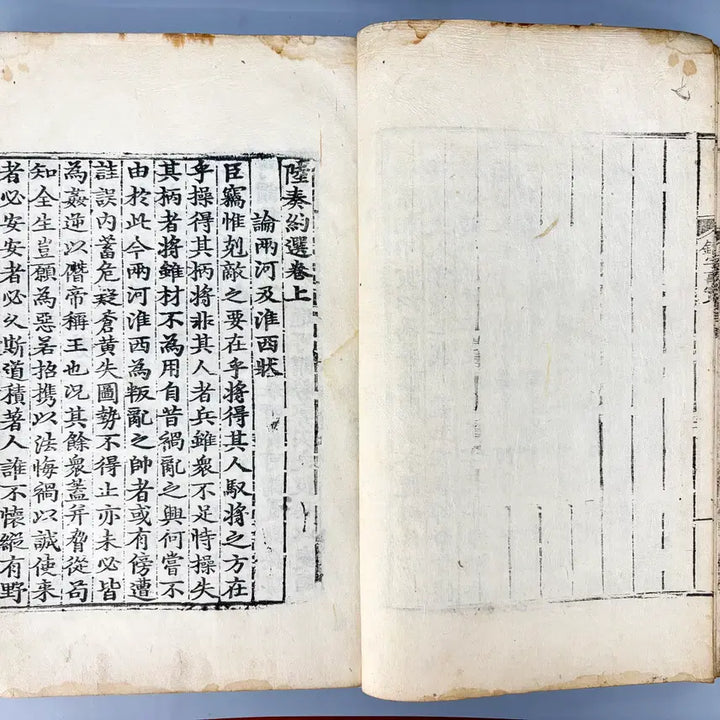 陸奏約選卷上
論兩河及淮西狀
臣竊惟剋敵之要在乎將得其人馭將之方在
乎操得其柄將非其人者兵雖衆不足恃操失
其柄者將雖材不為用自昔禍亂之興何嘗不
由於此今兩河淮西為叛亂之帥者或有傍遭
詿誤內蓄危疑蒼黃失圖勢不得止亦未必皆
為姦逆以僭帝稱王也况其餘衆蓋並脅從苟
知全生豈願為惡若招携以法悔禍以誠使来
者必安安者必久斯道積著人誰不懷縱有野